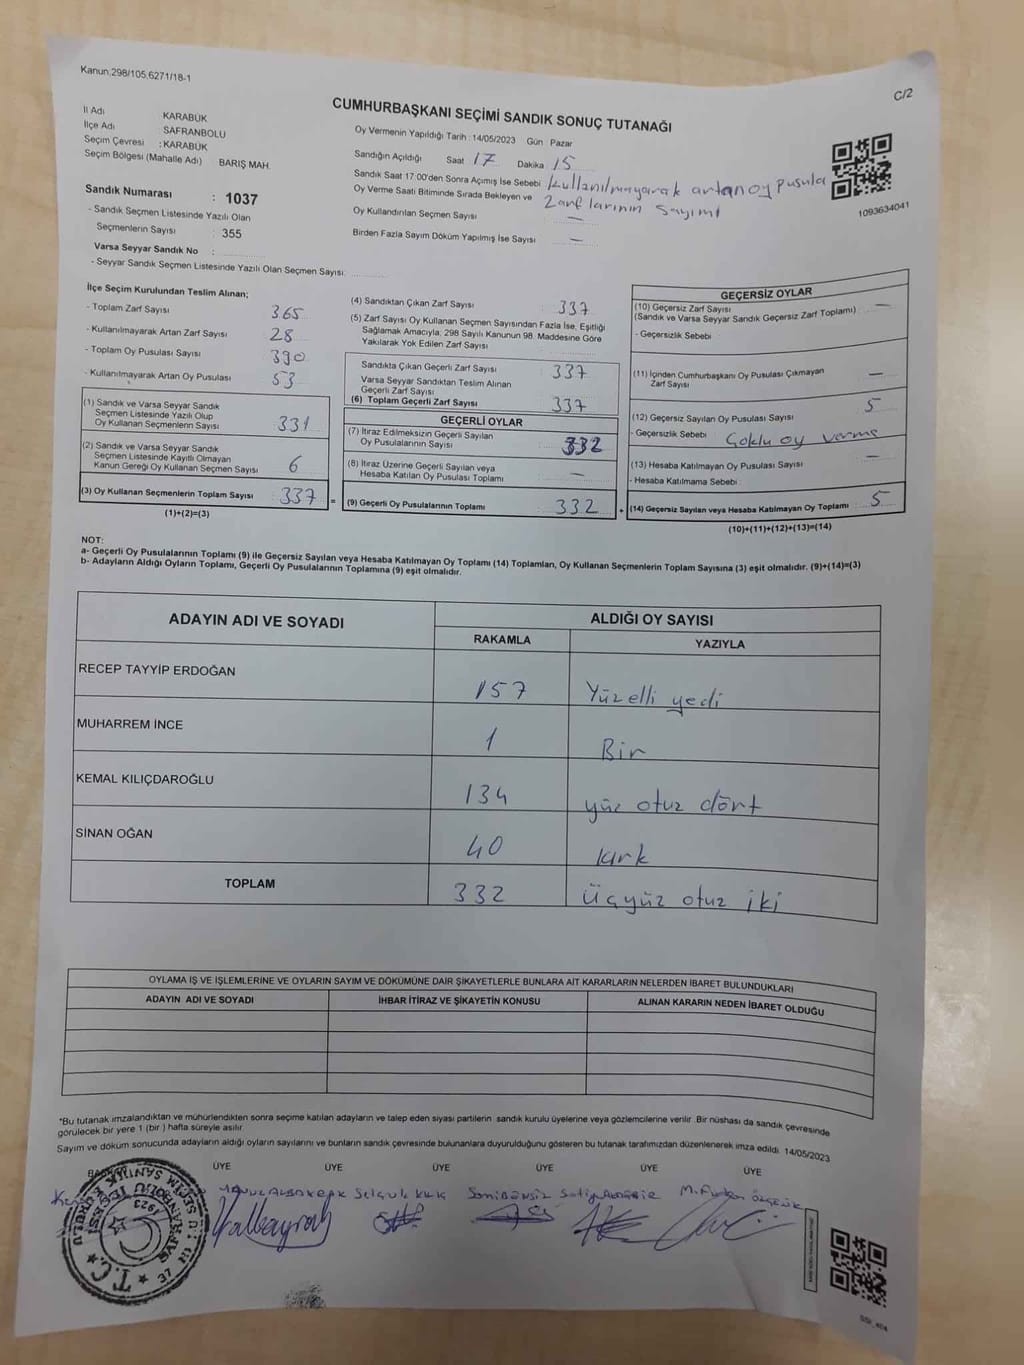 Kanun,298/105,6271/18-1
C/2
CUMHURBAŞKANI SEÇİMİ SANDIK SONUÇ TUTANAĞI
İl Adı KARABÜK
İlçe Adı SAFRANBOLU
Seçim Çevresi : KARABÜK
Seçim Bölgesi (Mahalle Adı) BARIŞ MAH.
Sandık Numarası : 1037
- Sandık Seçmen Listesinde Yazılı Olan
Seçmenlerin Sayısı : 355
Varsa Seyyar Sandık No :
- Seyyar Sandık Seçmen Listesinde Yazılı Olan Seçmen Sayısı:
Oy Vermenin Yapıldığı Tarih : 14/05/2023 Gün Pazar
Sandığın Açıldığı Saat 17 Dakika 15
Sandık Saat 17:00'den Sonra Açımış İse Sebebi kullanılmayarak artan oy pusula
Oy Verme Saati Bitiminde Sırada Bekleyen ve zarflarının sayımı
Oy Kullandırılan Seçmen Sayısı —
Birden Fazla Sayım Döküm Yapılmış İse Sayısı —
1093634041
İlçe Seçim Kurulundan Teslim Alınan;
- Toplam Zarf Sayısı 365
- Kullanılmayarak Artan Zarf Sayısı 28
- Toplam Oy Pusulası Sayısı 390
- Kullanılmayarak Artan Oy Pusulası 53
(1) Sandık ve Varsa Seyyar Sandık
Seçmen Listesinde Yazılı Olup
Oy Kullanan Seçmenlerin Sayısı 331
(2) Sandık ve Varsa Seyyar Sandık
Seçmen Listesinde Kayıtlı Olmayan
Kanun Gereği Oy Kullanan Seçmen Sayısı 6
(3) Oy Kullanan Seçmenlerin Toplam Sayısı 337 =
(1)+(2)=(3)
(4) Sandıktan Çıkan Zarf Sayısı : 337
(5) Zarf Sayısı Oy Kullanan Seçmen Sayısından Fazla İse, Eşitliği
Sağlamak Amacıyla, 298 Sayılı Kanunun 98. Maddesine Göre
Yakılarak Yok Edilen Zarf Sayısı
Sandıkta Çıkan Geçerli Zarf Sayısı : 337
Varsa Seyyar Sandıktan Teslim Alınan
Geçerli Zarf Sayısı
(6) Toplam Geçerli Zarf Sayısı 337
GEÇERLİ OYLAR
(7) İtiraz Edilmeksizin Geçerli Sayılan
Oy Pusulalarının Sayısı 332
(8) İtiraz Üzerine Geçerli Sayılan veya
Hesaba Katılan Oy Pusulası Toplamı —
(9) Geçerli Oy Pusulalarının Toplamı 332 +
GEÇERSİZ OYLAR
(10) Geçersiz Zarf Sayısı —
(Sandık ve Varsa Seyyar Sandık Geçersiz Zarf Toplamı)
- Geçersizlik Sebebi
(11) İçinden Cumhurbaşkanı Oy Pusulası Çıkmayan
Zarf Sayısı —
(12) Geçersiz Sayılan Oy Pusulası Sayısı 5
- Geçersizlik Sebebi Çoklu oy verme
(13) Hesaba Katılmayan Oy Pusulası Sayısı —
- Hesaba Katılmama Sebebi
(14) Geçersiz Sayılan veya Hesaba Katılmayan Oy Toplamı 5
(10)+(11)+(12)+(13)=(14)
NOT:
a- Geçerli Oy Pusulalarının Toplamı (9) ile Geçersiz Sayılan veya Hesaba Katılmayan Oy Toplamı (14) Toplamları, Oy Kullanan Seçmenlerin Toplam Sayısına (3) eşit olmalıdır. (9)+(14)=(3)
b- Adayların Aldığı Oyların Toplamı, Geçerli Oy Pusulalarının Toplamına (9) eşit olmalıdır.
ADAYIN ADI VE SOYADI ALDIĞI OY SAYISI
RAKAMLA YAZIYLA
RECEP TAYYİP ERDOĞAN 157 Yüz elli yedi
MUHARREM İNCE 1 Bir
KEMAL KILIÇDAROĞLU 134 yüz otuz dört
SİNAN OĞAN 40 kırk
TOPLAM 332 Üçyüz otuz iki
OYLAMA İŞ VE İŞLEMLERİNE VE OYLARIN SAYIM VE DÖKÜMÜNE DAİR ŞİKAYETLERLE BUNLARA AİT KARARLARIN NELERDEN İBARET BULUNDUKLARI
ADAYIN ADI VE SOYADI İHBAR İTİRAZ VE ŞİKAYETİN KONUSU ALINAN KARARIN NEDEN İBARET OLDUĞU
*Bu tutanak imzalandıktan ve mühürlendikten sonra seçime katılan adayların ve talep eden siyasi partilerin sandık kurulu üyelerine veya gözlemcilerine verilir. Bir nüshası da sandık çevresinde
görülecek bir yere 1 (bir ) hafta süreyle asılır.
Sayım ve döküm sonucunda adayların aldığı oyların sayılarını ve bunların sandık çevresinde bulunanlara duyurulduğunu gösteren bu tutanak tarafımızdan düzenlenerek imza edildi. 14/05/2023
ÜYE ÜYE ÜYE ÜYE ÜYE ÜYE
Selçuk Kılıç
T.C.
1923